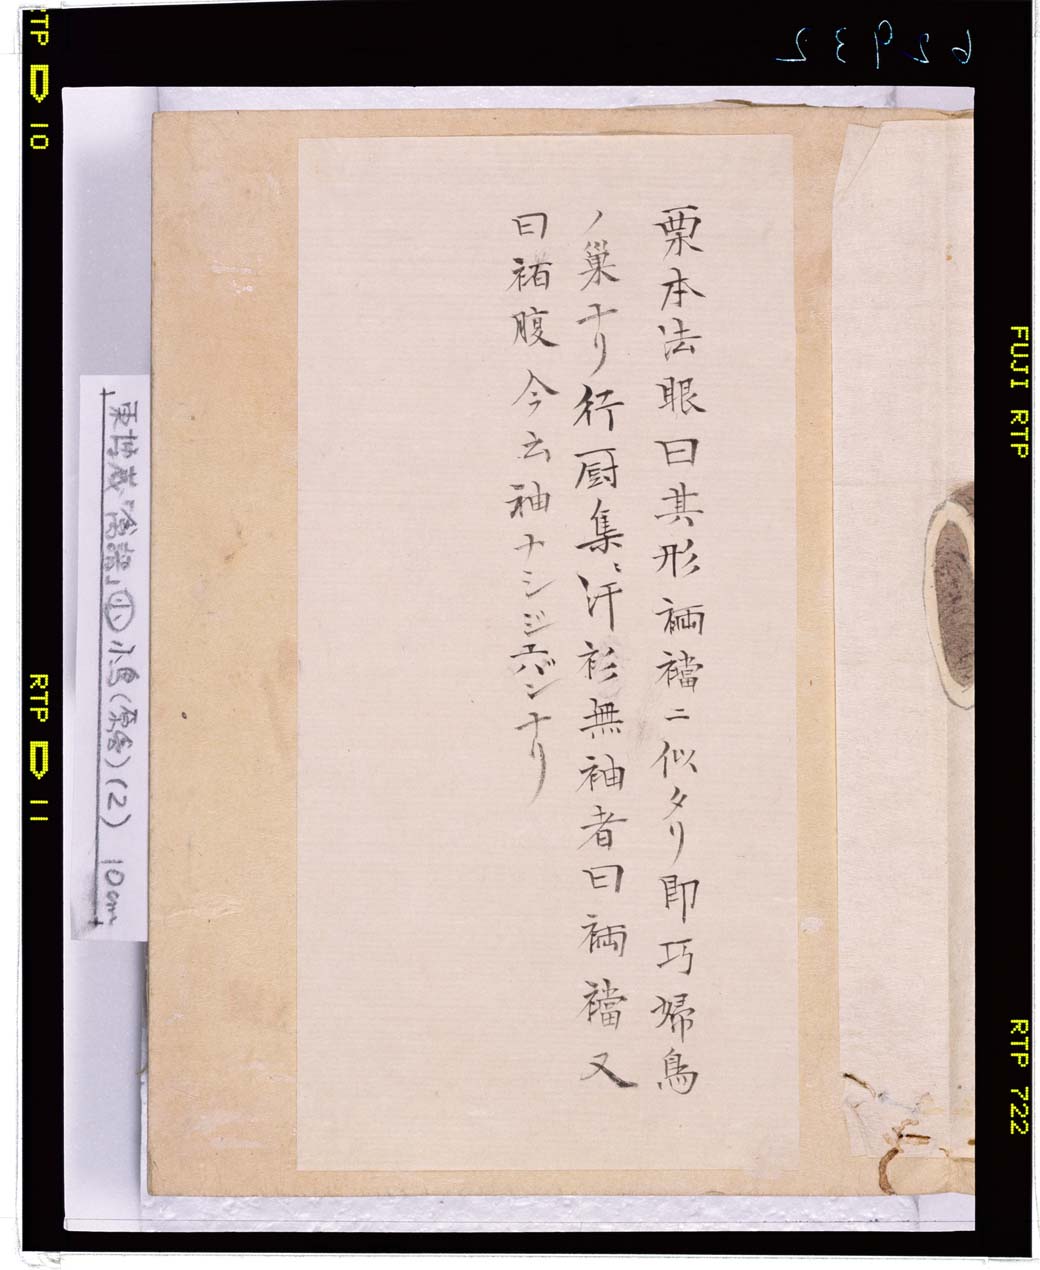 栗本法眼曰其形裲襠ニ似タリ即巧婦鳥
ノ巣ナリ行厨集ニ汗衫無袖者曰裲襠又
曰褚腹今云袖ナシジュバンナリ
小鳥(原舎)(2) 10cm
62932
RTP 10
RTP 11
FUJI RTP
RTP 722